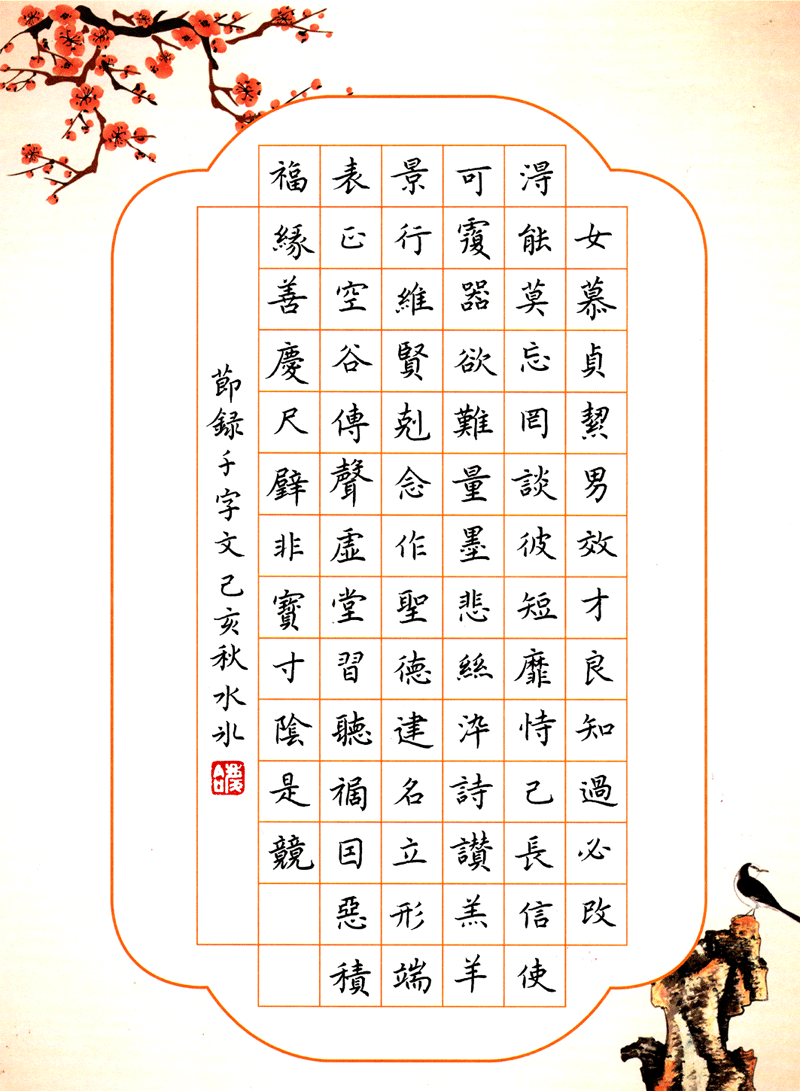 女慕貞絜男效才良知過必改
得能莫忘罔談彼短靡恃己長信使
可覆器欲難量墨悲絲染詩讃羔羊
景行維賢剋念作聖德建名立形端
表正空谷傳聲虛堂習聽禍因惡積
福緣善慶尺璧非寶寸陰是競
節録千字文己亥秋水氷